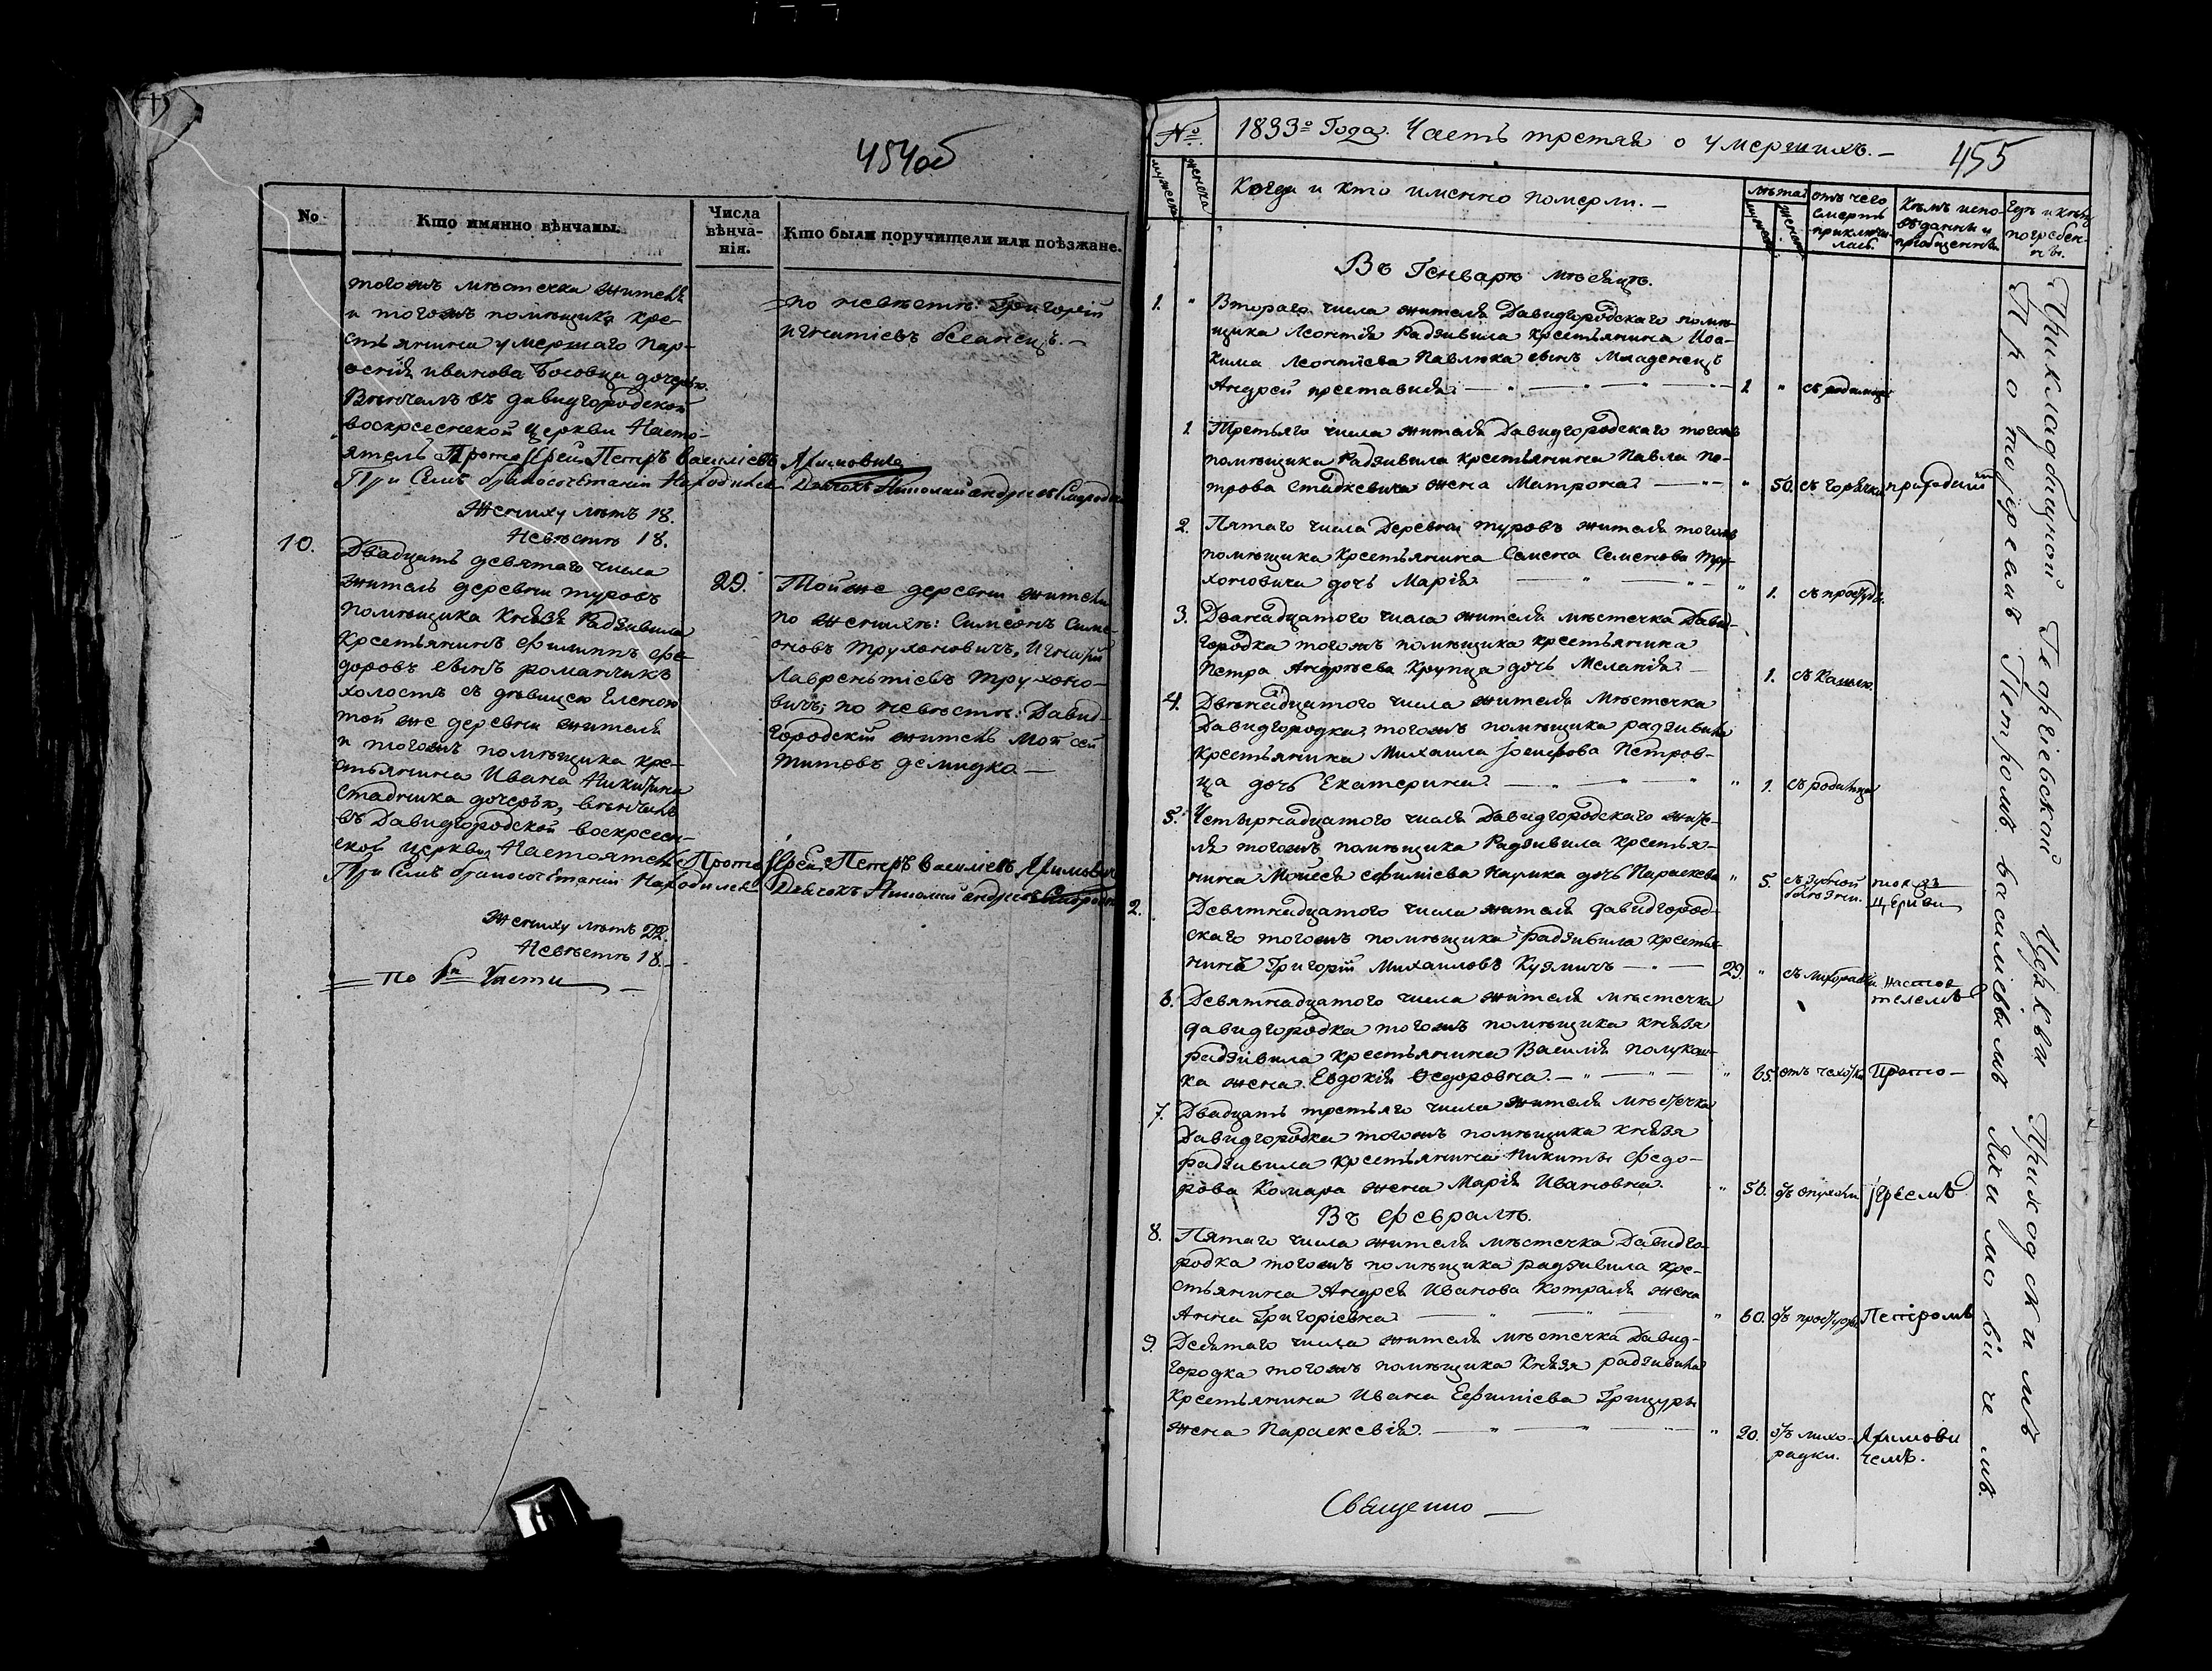 454 об
No
Кто имянно вѣнчаны.
Числа вѣнча-нія.
Кто были поручители или поѣзжане.
тогожъ мѣстечка жителя
и тогожъ помѣщика кре-
стьянина умершаго Пар-
фенія иванова дочерью.
Вѣнчалъ въ давидгородской
воскресенской Церкви Насто-
ятель Протоіерей Петръ василіевъ Якимовичъ
При Семъ бракосочетаніи Находился Дьячокъ Николай андреевъ
Жениху лѣтъ 18.
Невѣстѣ 18.
по невѣстѣ: Григорій
игнатіевъ
10.
Двадцать девятаго числа
житель деревни туровъ
помѣщика Князя Радзивила
Крестьянинъ филиппъ фе-
доровъ сынъ романчикъ
холостъ съ дѣвицею Еленою
той же деревни жителя
и тогожъ помѣщика кре-
стьянина Ивана Никитина
Стадника дочерью, вѣнчалъ
въ Давидгородской воскресен-
ской церкви, Настоятель Протоіерей Петръ василіевъ Якимовичъ
При Семъ бракосочетаніи Находился Дьячокъ Николай андреевъ
Жениху лѣтъ 22.
Невѣстѣ 18.
29.
Той же деревни жители
по женихѣ: Симеонъ Симе-
оновъ трухоновичъ, Игнатій
Лаврентіевъ трухоно-
вичъ; по невѣстѣ: Давид-
городскій житель Мойсей
титовъ демидко —
№
1833го Года. Часть третяя о умершихъ. —
455
мужеска
женска
Когда и кто именно померли. —
лѣта
мужеск
женск
отъ чего смерть приключи-лась.
Кѣмъ испо-вѣданы и пріобщенны
Гдѣ и кѣмъ погребен-ны.
Въ Генварѣ мѣсяцѣ.
1. " Втораго числа жителя Давидгородскаго помѣ-
щика Леонтія Радзивила крестьянина Иоа-
кима Леонтіева Павлюка сынъ Младенецъ
Андрей преставися. 1 " съ родимца
1 Третьяго числа жителя Давидгородскаго тогожъ
помѣщика Радзивила крестьянина Павла пе-
трова Стадкевича жена Матрона. " 50. съ горячки
2. Пятаго числа Деревни туровъ жителя тогожъ
помѣщика Крестьянина Семена Семенова тру-
хоновича дочь Марія. " 1. съ простуды.
3. Дванадцатого числа жителя мѣстечка Давид-
городка тогожъ помѣщика крестьянина
Петра Андрѣева Крупца дочь Меланія. 1. съ Кашлю.
4. Двѣнадцатого числа жителя Мѣстечка
Давидгородка тогожъ помѣщика радзивила
Крестьянина Михаила Іосифова Петров-
ца дочь Екатерина. " 1. съ родимца
5. Четырнадцатого числа Давидгородскаго жите-
ля тогожъ помѣщика Радзивила Крестья-
нина Мойсея ефиміева Карика дочь Параскева " 5. съ зубной болѣзни.
церкви
2. Девятнадцатого числа жителя давидгород-
скаго тогожъ помѣщика радзивила крестья-
нина Григорій Михаиловъ Кузмичъ 29. " съ лихорадки настоя-
телемъ
6. Девятнадцатого числа жителя мѣстечка
давидгородка тогожъ помѣщика князя
радзивила крестьянина Василія полукош-
ка жена Евдокія Ѳедоровна. " 65. отъ чахотки Прото-
7. Двадцать третьяго числа жителя мѣстечка
Давидгородка тогожъ помѣщика князя
радзивила крестьянина Никиты федо-
рова Комара жена Марія Ивановна. " 56. отъ опухоли іереемъ
Въ февралѣ.
8. Пятаго числа жителя мѣстечка Давидго-
родка тогожъ помѣщика радзивила кре-
стьянина Андрея Иванова Котраля жена
Анна Григоріевна " 60. отъ простуды Петромъ
9. Десятаго числа жителя мѣстечка Давид-
городка тогожъ помѣщика Князя радзивила
Крестьянина Ивана Ефиміева Грицуры
жена Параскевія. " 20. отъ лихо-радки. Якимови-
чемъ.
Священно —
Прикладбищной Георгіевской Церкви Приходскимъ
Протоіереемъ Петромъ василіевымъ Якимовичемъ.